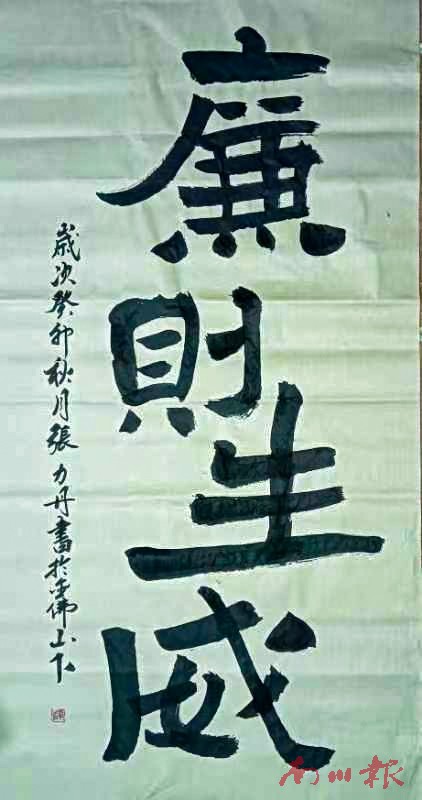 廉則生威
歲次癸卯秋月張力丹書於金佛山下
南川報